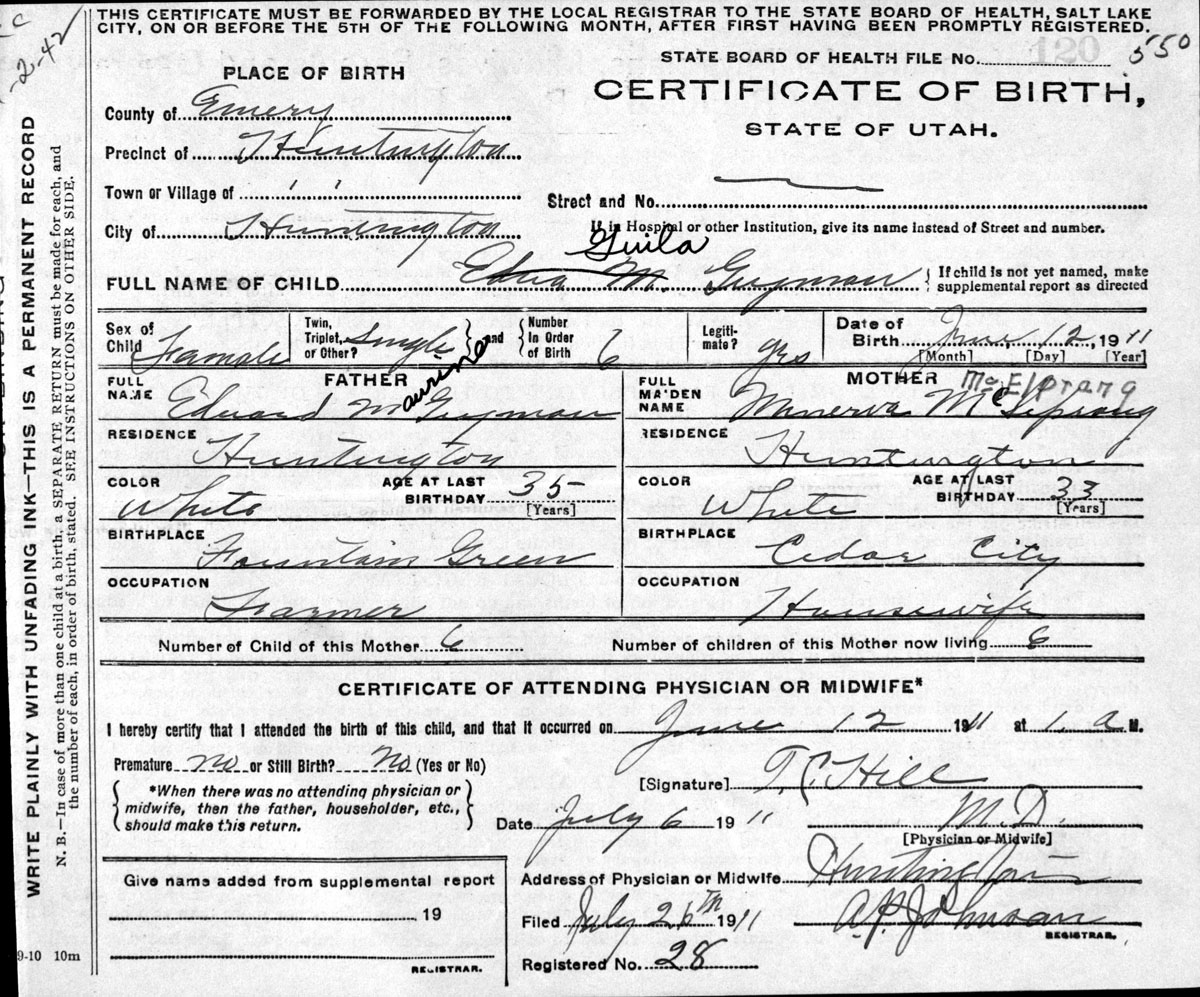 THIS CERTIFICATE MUST BE FORWARDED BY THE LOCAL REGISTRAR TO THE STATE BOARD OF HEALTH, SALT LAKE
CITY, ON OR BEFORE THE 5TH OF THE FOLLOWING MONTH, AFTER FIRST HAVING BEEN PROMPTLY REGISTERED.
2-42
STATE BOARD OF HEALTH FILE No. 120 550
PLACE OF BIRTH
CERTIFICATE OF BIRTH,
STATE OF UTAH.
County of Emery
Precinct of Huntington
Town or Village of ' ' '
Street and No.
If in Hospital or other Institution, give its name instead of Street and number.
City of Huntington
Guila
FULL NAME OF CHILD Edna M. Guyman
If child is not yet named, make
supplemental report as directed
Sex of Child Female
Twin, Triplet, or Other? Single and Number In Order of Birth 6
Legiti-mate? yes
Date of Birth June 12, 1911
[Month] [Day] [Year]
FATHER
MOTHER McElprang
FULL NAME Edward M Guyman
aurine
FULL MAIDEN NAME Minerva McElprang
RESIDENCE Huntington
RESIDENCE Huntington
COLOR White AGE AT LAST BIRTHDAY 35 [Years]
COLOR White AGE AT LAST BIRTHDAY 33 [Years]
BIRTHPLACE Fountain Green
BIRTHPLACE Cedar City
OCCUPATION Farmer
OCCUPATION Housewife
Number of Child of this Mother 6
Number of children of this Mother now living 6
CERTIFICATE OF ATTENDING PHYSICIAN OR MIDWIFE*
I hereby certify that I attended the birth of this child, and that it occurred on June 12 1911 at 1, a M.
Premature no or Still Birth? No (Yes or No)
*When there was no attending physician or
midwife, then the father, householder, etc.,
should make this return.
[Signature] T. C. Hill
Date July 6 1911
M.D.
[Physician or Midwife]
Give name added from supplemental report
19
REGISTRAR.
Address of Physician or Midwife Huntington
Filed July 26th 1911
A. P. Johnson
REGISTRAR.
Registered No. 28
9-10 10m
WRITE PLAINLY WITH UNFADING INK—THIS IS A PERMANENT RECORD
N. B.—In case of more than one child at a birth, a SEPARATE RETURN must be made for each, and
the number of each, in order of birth, stated. SEE INSTRUCTIONS ON OTHER SIDE.